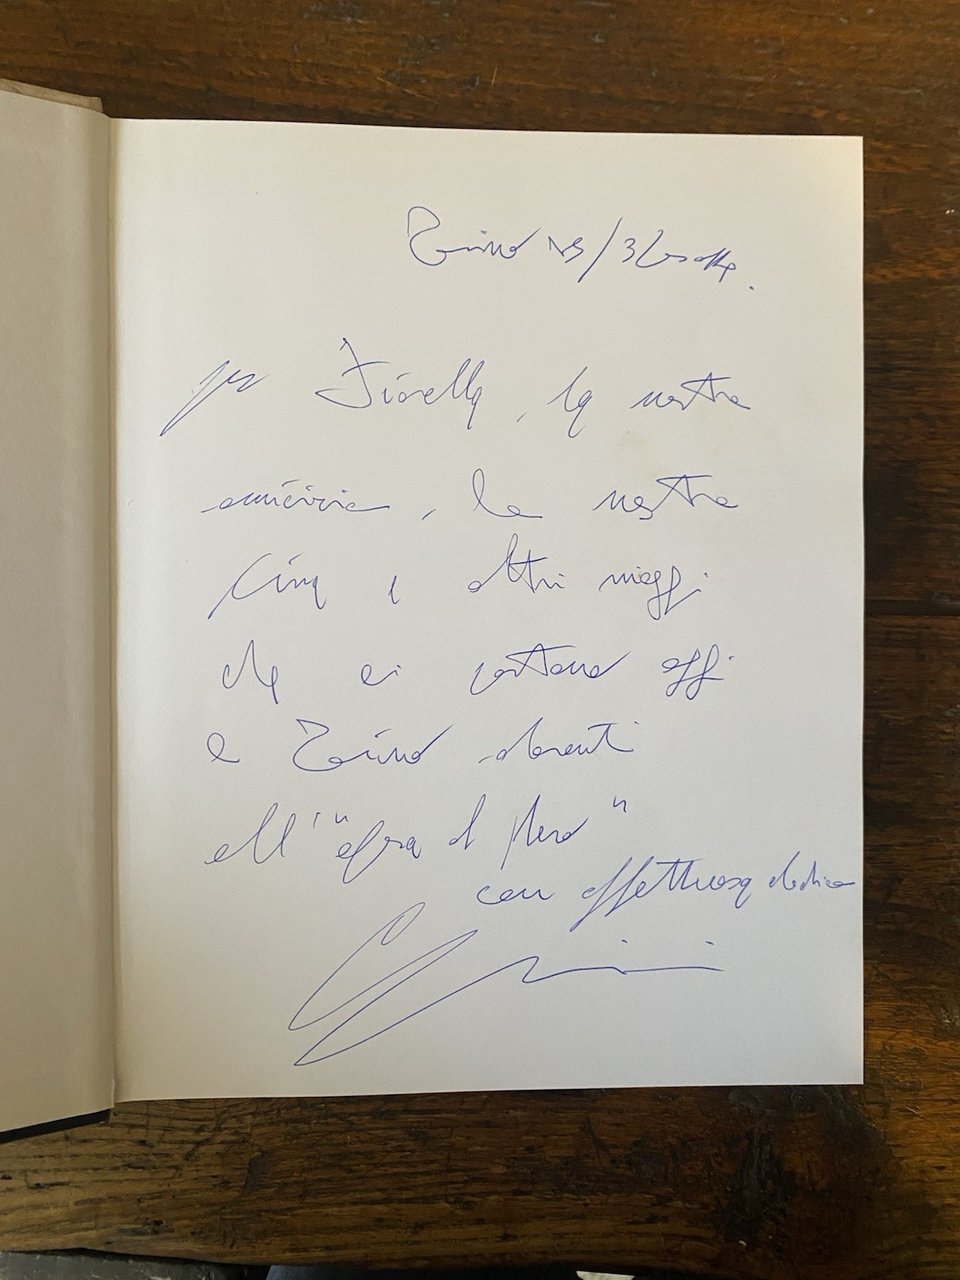 Torino 13/3
per Fiorella, la nostra
amicizia, la nostra
Cina e altri viaggi
che ci portano oggi
a Torino davanti
all'" "
con affettuosa dedica